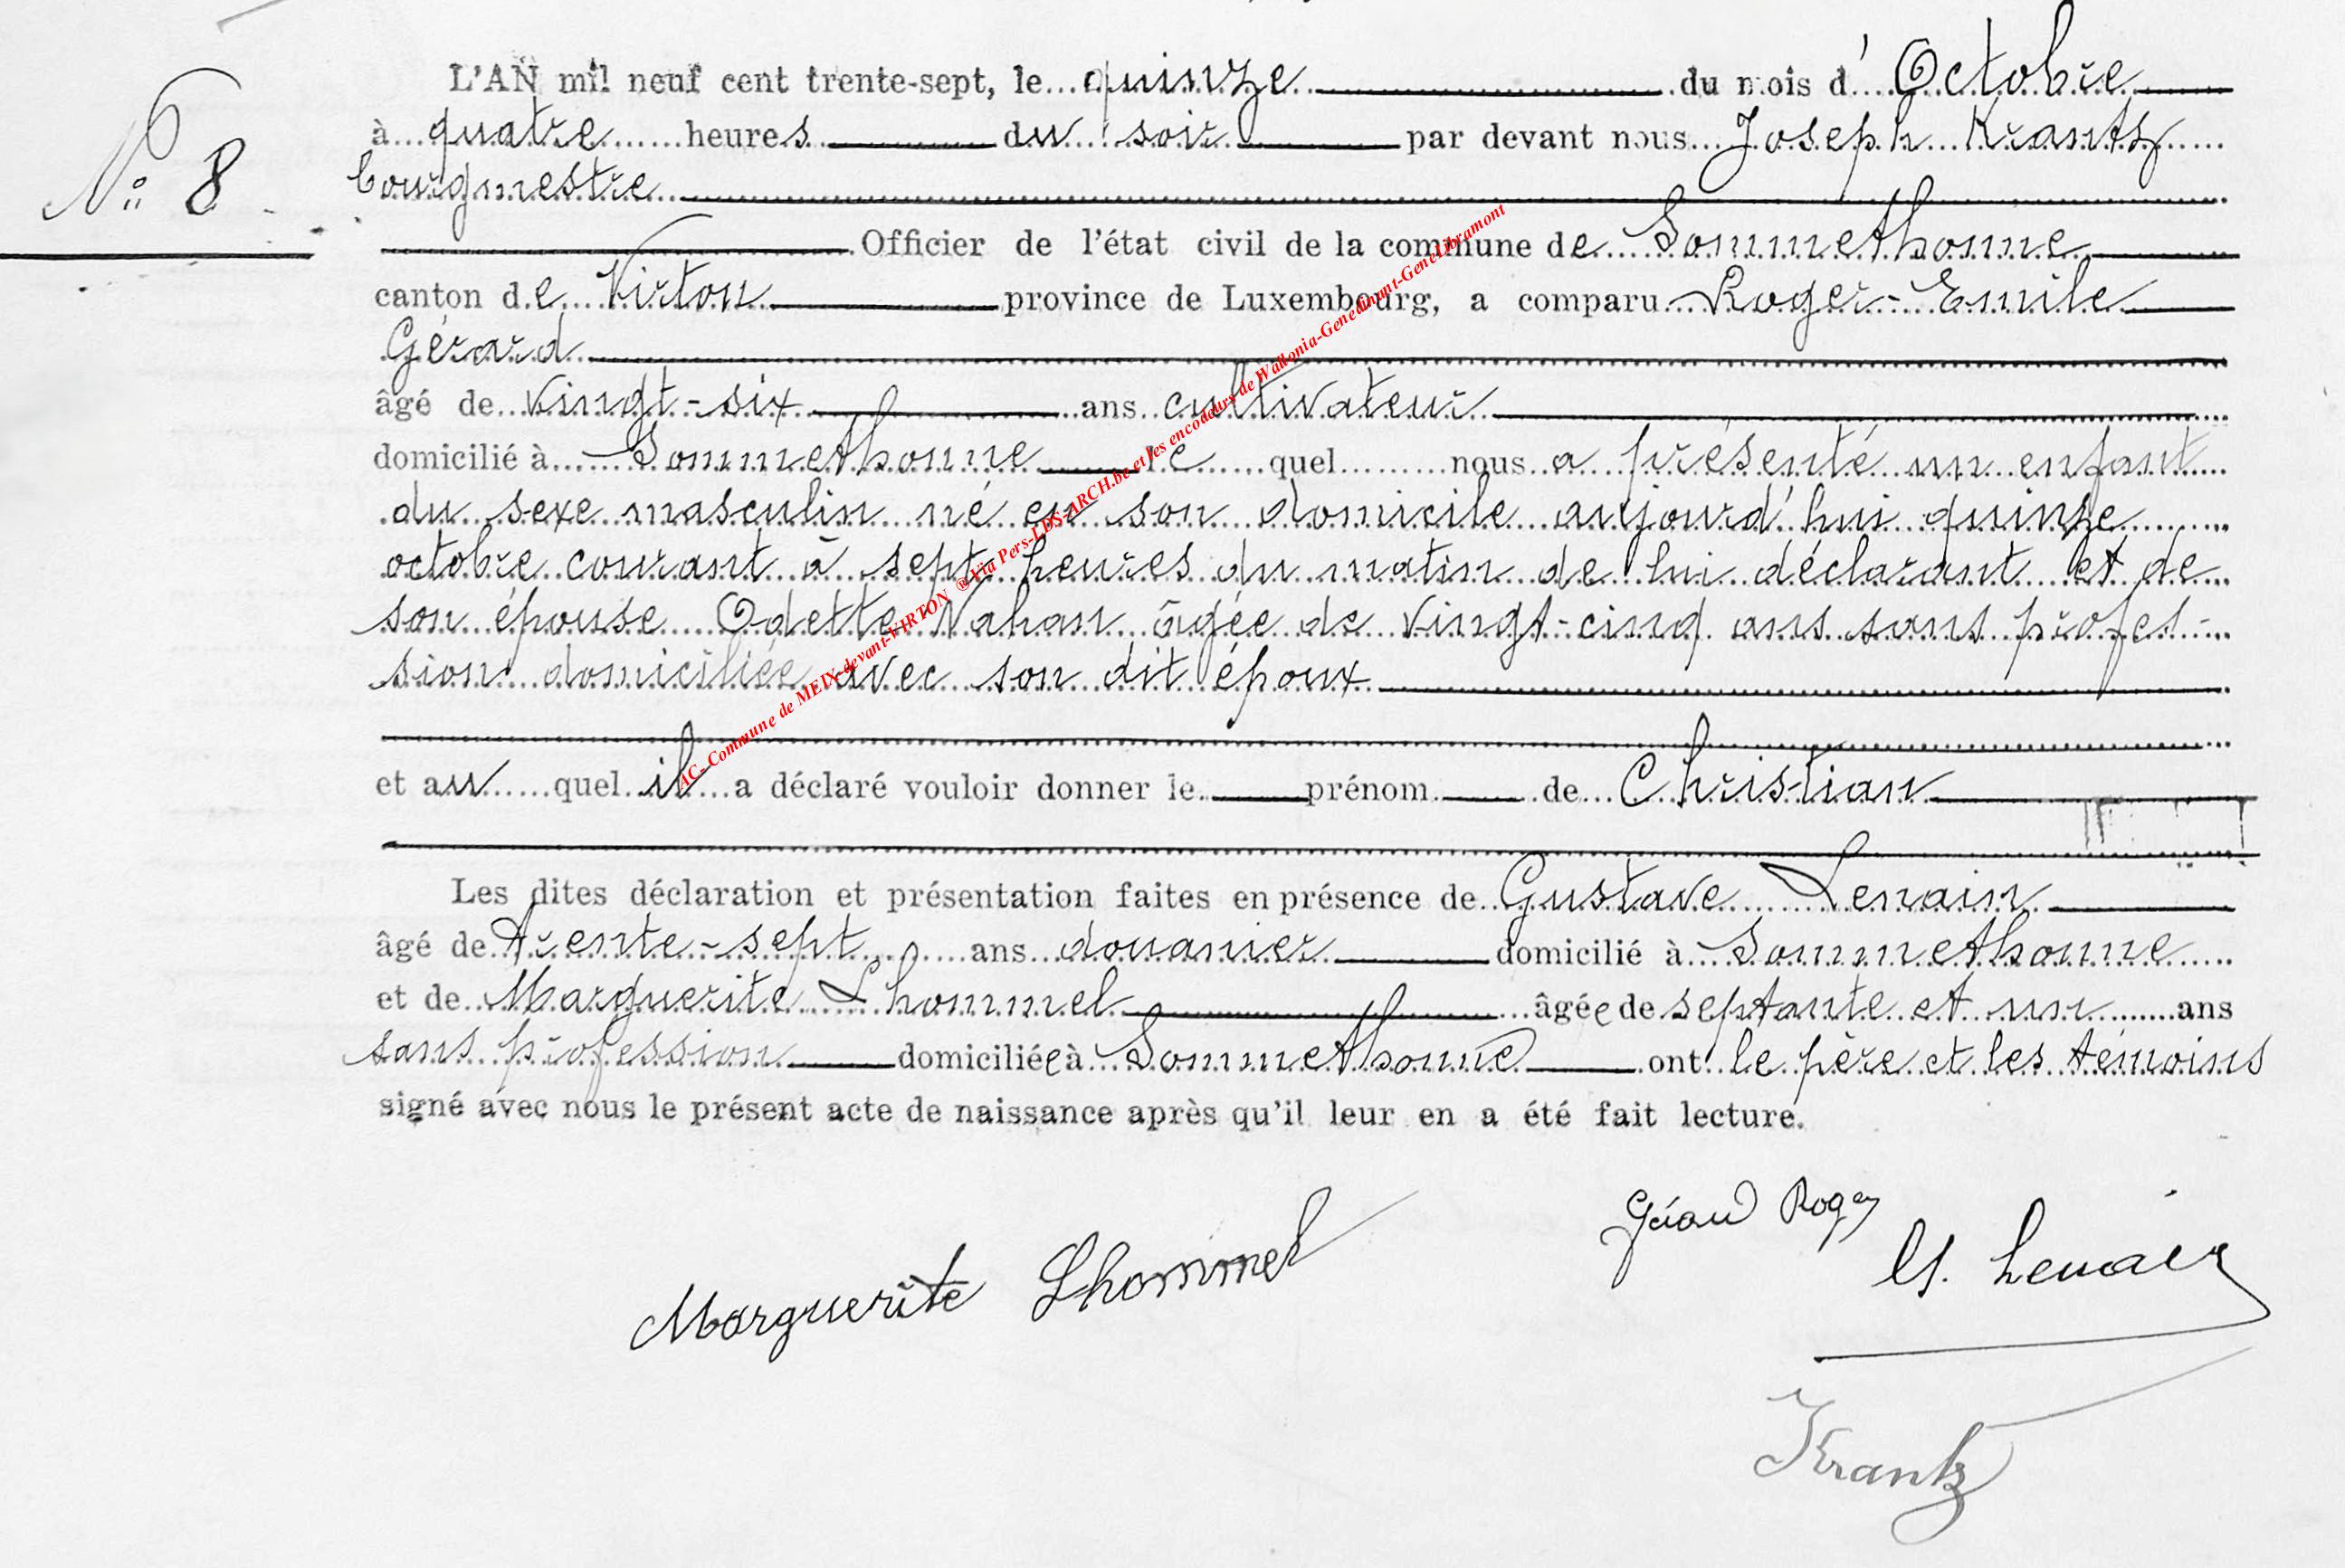 L'AN mil neuf cent trente-sept, le quinze du mois d'Octobre
N° 8
à quatre heures du soir par devant nous Joseph Krantz
bourgmestre
Officier de l'état civil de la commune de Sommethonne
canton de Virton province de Luxembourg, a comparu Roger-Emile
Gérard
âgé de vingt-six ans cultivateur
domicilié à Sommethonne le quel nous a présenté un enfant
du sexe masculin né en son domicile aujourd'hui quinze
octobre courant à sept heures du matin de lui déclarant et de
son épouse Odette Nahan âgée de vingt-cinq ans sans profes-
sion domiciliée avec son dit époux
et au quel il a déclaré vouloir donner le prénom de Christian
Les dites déclaration et présentation faites en présence de Gustave Lenain
âgé de trente-sept ans douanier domicilié à Sommethonne
et de Marguerite Lhommel âgée de septante et un ans
sans profession domiciliée à Sommethonne ont le père et les témoins
signé avec nous le présent acte de naissance après qu'il leur en a été fait lecture.
Gérard Roger
Marguerite Lhommel
G. Lenain
Krantz
AC- Commune de MEIX-devant-VIRTON @Via Pers-LDS-ARCH.be et les encodeurs de Wallonia-Genedinant-GeneLibramont